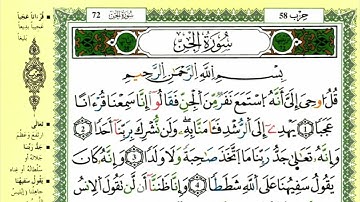 حزب 58
سُورَةُ الجِنّ
72
سُورَةُ الجِنّ
بِسْمِ اِللَّهِ اِلرَّحْمَٰنِ اِلرَّحِيمِ
قُلُ اوحِيَ إِلَيَّ أَنَّهُ اُسْتَمَعَ نَفَرٌ مِّنَ اَلْجِنِّ فَقَالُوٓاْ إِنَّا سَمِعْنَا قُرْءَاناً
عَجَباً 1 يَهْدِےٓ إِلَى اَلرُّشْدِ فَـَٔامَنَّا بِهِۦ وَلَن نُّشْرِكَ بِرَبِّنَآ أَحَداً 2
وَإِنَّهُۥ تَعَٰلَىٰ جَدُّ رَبِّنَا مَا اَتَّخَذَ صَٰحِبَةً وَلَا وَلَداً 3 وَإِنَّهُۥ كَانَ
يَقُولُ سَفِيهُنَا عَلَى اَللَّهِ شَطَطاً 4 وَإِنَّا ظَنَنَّآ أَن لَّن تَقُولَ اَلِانسُ
قُرْءَاناً عَجَباً
بديعاً
تعالى
ارتفع وعظم
جَدُّ رَبِّنَا
جلاله أو
سلطانه أو غناه